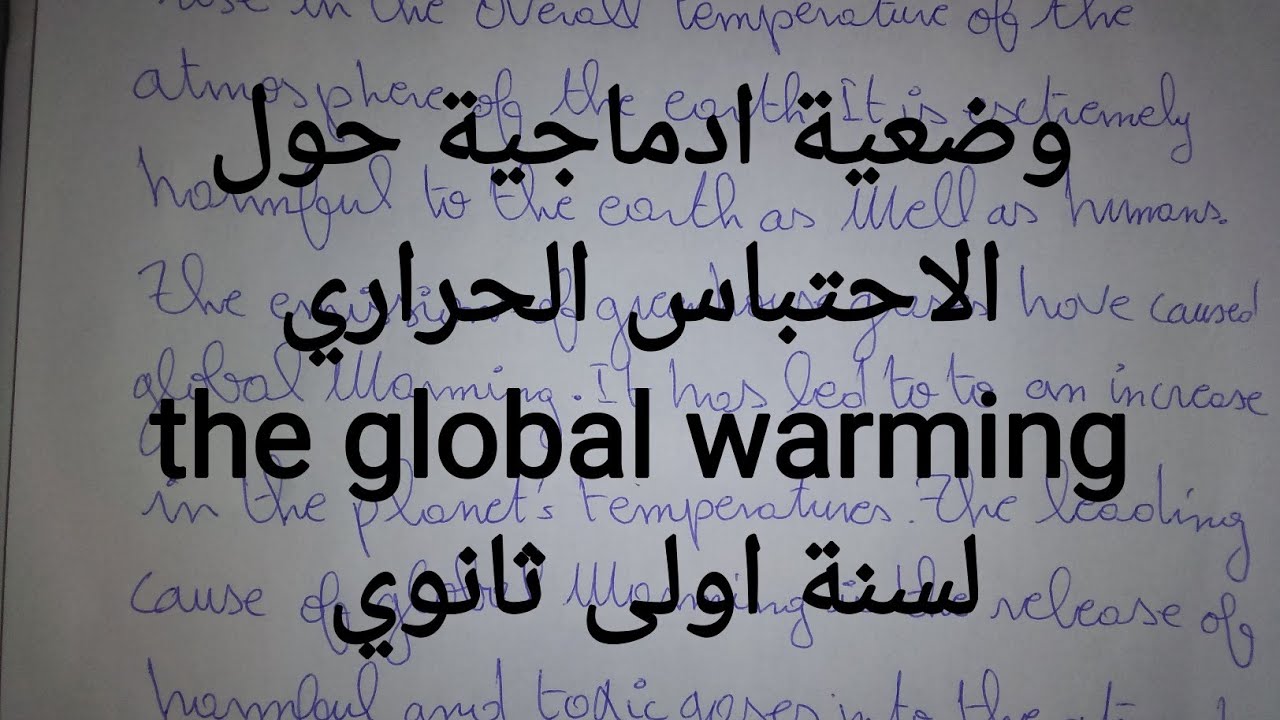 rise in the overall temperature of the
atmosphere of the earth. It is extremely
وضعية ادماجية حول
harmful to the earth as well as humans.
الاحتباس الحراري
The emission of greenhouse gases have caused
global warming. It has led to to an increase
the global warming
in the planet's temperatures. The leading
لسنة اولى ثانوي
cause of global warming is the release of
harmful and toxic gases into the